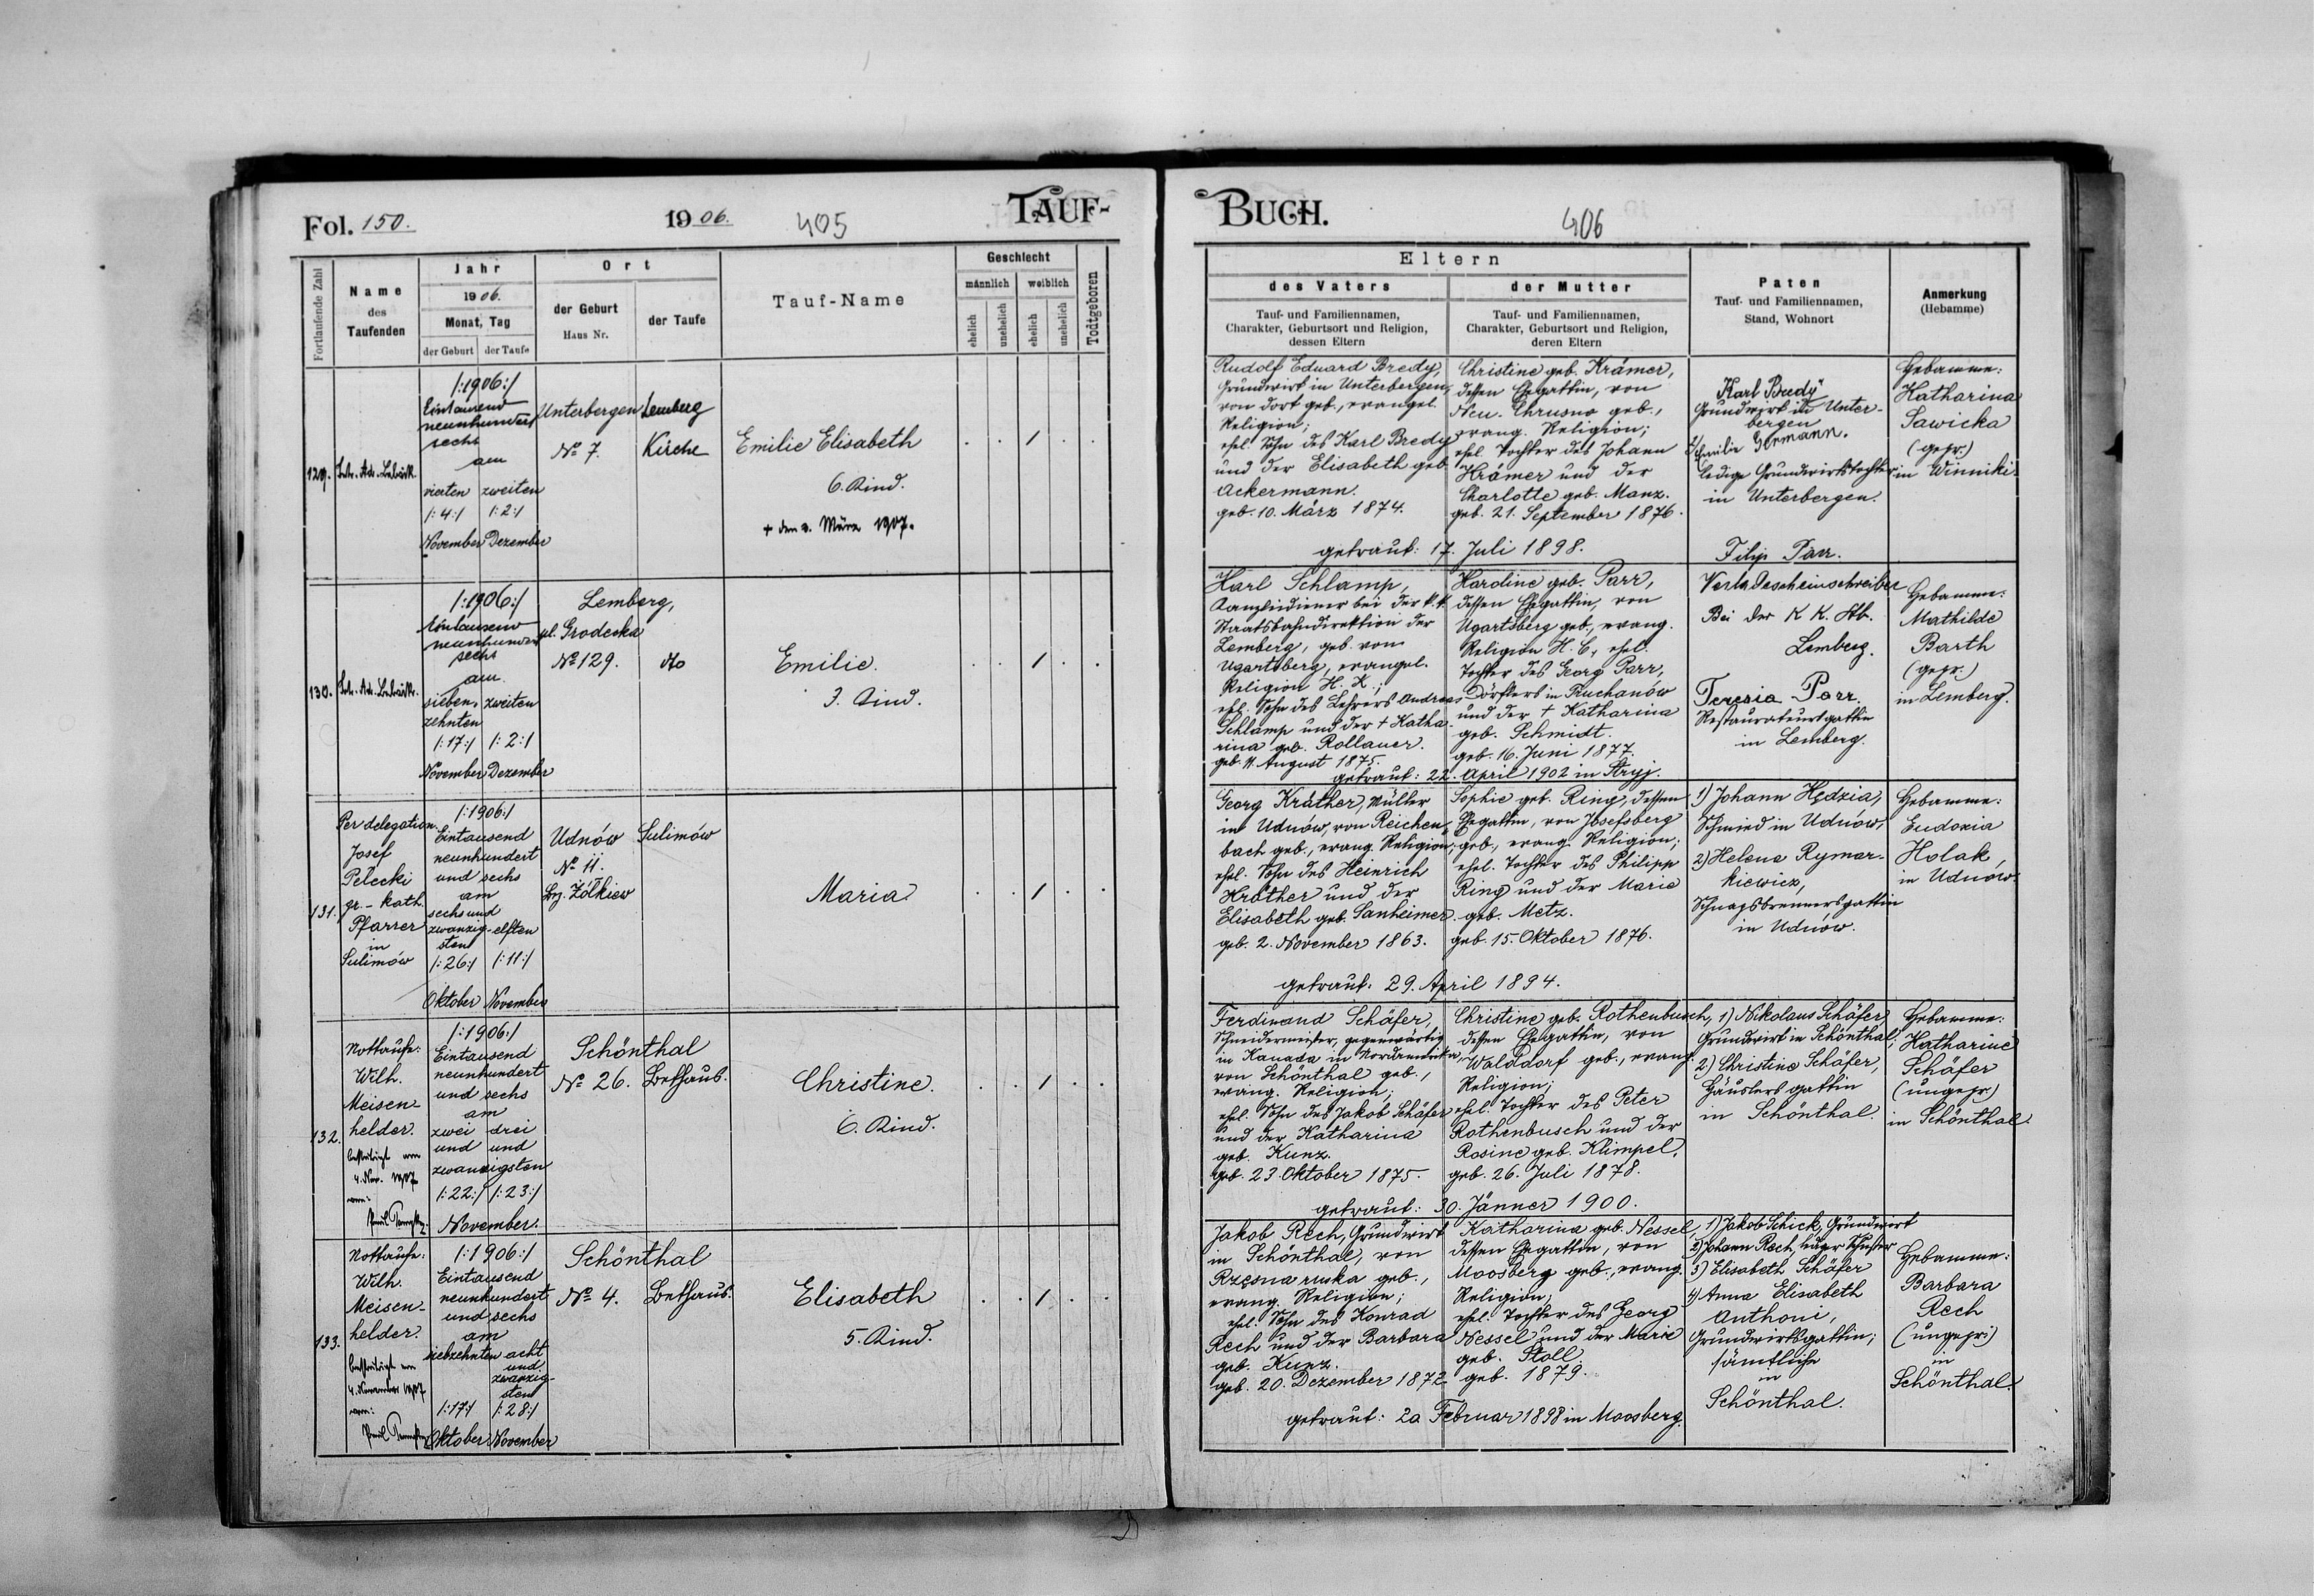 Fol. 150.
1906.
405
TAUF-
Fortlaufende Zahl
Name
des
Taufenden
Jahr
1906.
Monat, Tag
der Geburt
der Taufe
Ort
der Geburt
Haus Nr.
der Taufe
Tauf-Name
Geschlecht
männlich
weiblich
ehelich
unehelich
ehelich
unehelich
Todtgeboren
129.
/:1906:/
Eintausend
neunhundert
sechs
am
vierten zweiten
/:4:/ /:2:/
November Dezember
Unterbergen
№ 7.
Lemberg
Kirche
Emilie Elisabeth
6. Kind.
+ den 2. März 1907.
130.
/:1906:/
Eintausend
neunhundert
sechs
am
sieben- zweiten
zehnten
/:17:/ /:2:/
November Dezember
Lemberg,
ul. Grodecka
№ 129.
dto
Emilie.
3. Kind.
131.
Per delegation.
Josef
Pelecki
gr.-kath.
Pfarrer
in
Sulimów
/:1906:/
Eintausend
neunhundert
und sechs
am
sechs und
zwanzig- elften
sten
/:26:/ /:11:/
Oktober November
Udnów
№ 11.
Bez. Żółkiew
Sulimów
Maria
132.
Nottaufe:
Wilh.
Meisen-
helder.
bestätigt am
4. Nov. 1907
/:1906:/
Eintausend
neunhundert
und sechs
am
zwei drei
und und
zwanzigsten
/:22:/ /:23:/
November.
Schönthal
№ 26.
Bethaus.
Christine.
6. Kind.
133.
Nottaufe:
Wilh.
Meisen-
helder.
bestätigt am
4. November 1907
/:1906:/
Eintausend
neunhundert
und sechs
am
siebzehnten acht
und
zwanzig-
sten
/:17:/ /:28:/
Oktober November
Schönthal
№ 4.
Bethaus.
Elisabeth
5. Kind.
BUCH.
406
Eltern
des Vaters
Tauf- und Familiennamen,
Charakter, Geburtsort und Religion,
dessen Eltern
der Mutter
Tauf- und Familiennamen,
Charakter, Geburtsort und Religion,
deren Eltern
Paten
Tauf- und Familiennamen,
Stand, Wohnort
Anmerkung
(Hebamme)
Rudolf Eduard Bredy,
Grundwirt in Unterbergen,
von dort geb., evangel.
Religion;
ehel. Sohn des Karl Bredy
und der Elisabeth geb.
Ackermann.
geb. 10. März 1874.
Christine geb. Krämer,
dessen Ehegattin, von
Neu-Chrusno geb.,
evang. Religion;
ehel. Tochter des Johann
Krämer und der
Charlotte geb. Manz.
geb. 21. September 1876.
getraut: 17. Juli 1898.
Karl Bredy
Grundwirt in Unter-
bergen
2) Emilie Germann.
ledige Grundwirtstochter
in Unterbergen.
Hebamme:
Katharina
Sawicka
(gepr.)
in Winniki.
Karl Schlamp,
Kanzleidiener bei der k.k.
Staatsbahndirektion der
Lemberg, geb. von
Ugartsberg, evangel.
Religion H. K.;
ehel. Sohn des Lehrers Andreas
Schlamp und der + Katha-
rina geb. Rollauer.
geb. 11. August 1875.
Karoline geb. Parr,
dessen Ehegattin, von
Ugartsberg geb., evang.
Religion H. C., ehel.
Tochter des Georg Parr,
Dörflers in Ruchanów
und der + Katharina
geb. Schmidt.
geb. 16. Juni 1877.
getraut: 22. April 1902 in Stryj.
Filip Parr.
Bei der K K. Stb.
Lemberg.
Teresia Parr.
Restaurateursgattin
in Lemberg.
Hebamme:
Mathilde
Barth
(gepr.)
in Lemberg.
Georg Kräther, Müller
in Udnów, von Reichen-
bach geb., evang. Religion;
ehel. Sohn des Heinrich
Kräther und der
Elisabeth geb. Sanheimer.
geb. 2. November 1863.
Sophie geb. Ring, dessen
Ehegattin, von Josefsberg
geb., evang. Religion;
ehel. Tochter des Philipp
Ring und der Marie
geb. Metz.
geb. 15. Oktober 1876.
getraut: 29. April 1894.
1) Johann Hędzia,
Schmied in Udnów,
2) Helene Rymar-
kiewicz,
Schnapsbrennersgattin
in Udnów.
Hebamme:
Eudoxia
Holak,
in Udnów.
Ferdinand Schäfer,
Schneidermeister, gegenwärtig
in Kanada in Nordamerika,
von Schönthal geb.,
evang. Religion;
ehel. Sohn des Jakob Schäfer
und der Katharina
geb. Kunz.
geb. 23. Oktober 1875.
Christine geb. Rothenbusch,
dessen Ehegattin, von
Walddorf geb., evang.
Religion;
ehel. Tochter des Peter
Rothenbusch und der
Rosine geb. Klimpel.
geb. 26. Juli 1878.
getraut: 30. Jänner 1900.
1) Nikolaus Schäfer,
Grundwirt in Schönthal;
2) Christine Schäfer,
Häuslersgattin
in Schönthal.
Hebamme:
Katharine
Schäfer
(ungepr.)
in Schönthal.
Jakob Rech, Grundwirt
in Schönthal, von
Rzęsna ruska geb.,
evang. Religion;
ehel. Sohn des Konrad
Rech und der Barbara
geb. Kunz.
geb. 20. Dezember 1872
Katharina geb. Nessel,
dessen Ehegattin, von
Moosberg geb., evang.
Religion;
ehel. Tochter des Georg
Nessel und der Marie
geb. Stoll.
geb. 1879.
getraut: 20 Februar 1898 in Moosberg.
1) Jakob Schick, Grundwirt
2) Johann Rech, lediger Schuster
3) Elisabeth Schäfer
4) Anna Elisabeth
Anthoni,
Grundwirtsgattin;
sämtliche
in
Schönthal.
Hebamme:
Barbara
Rech
(ungepr.)
in
Schönthal.